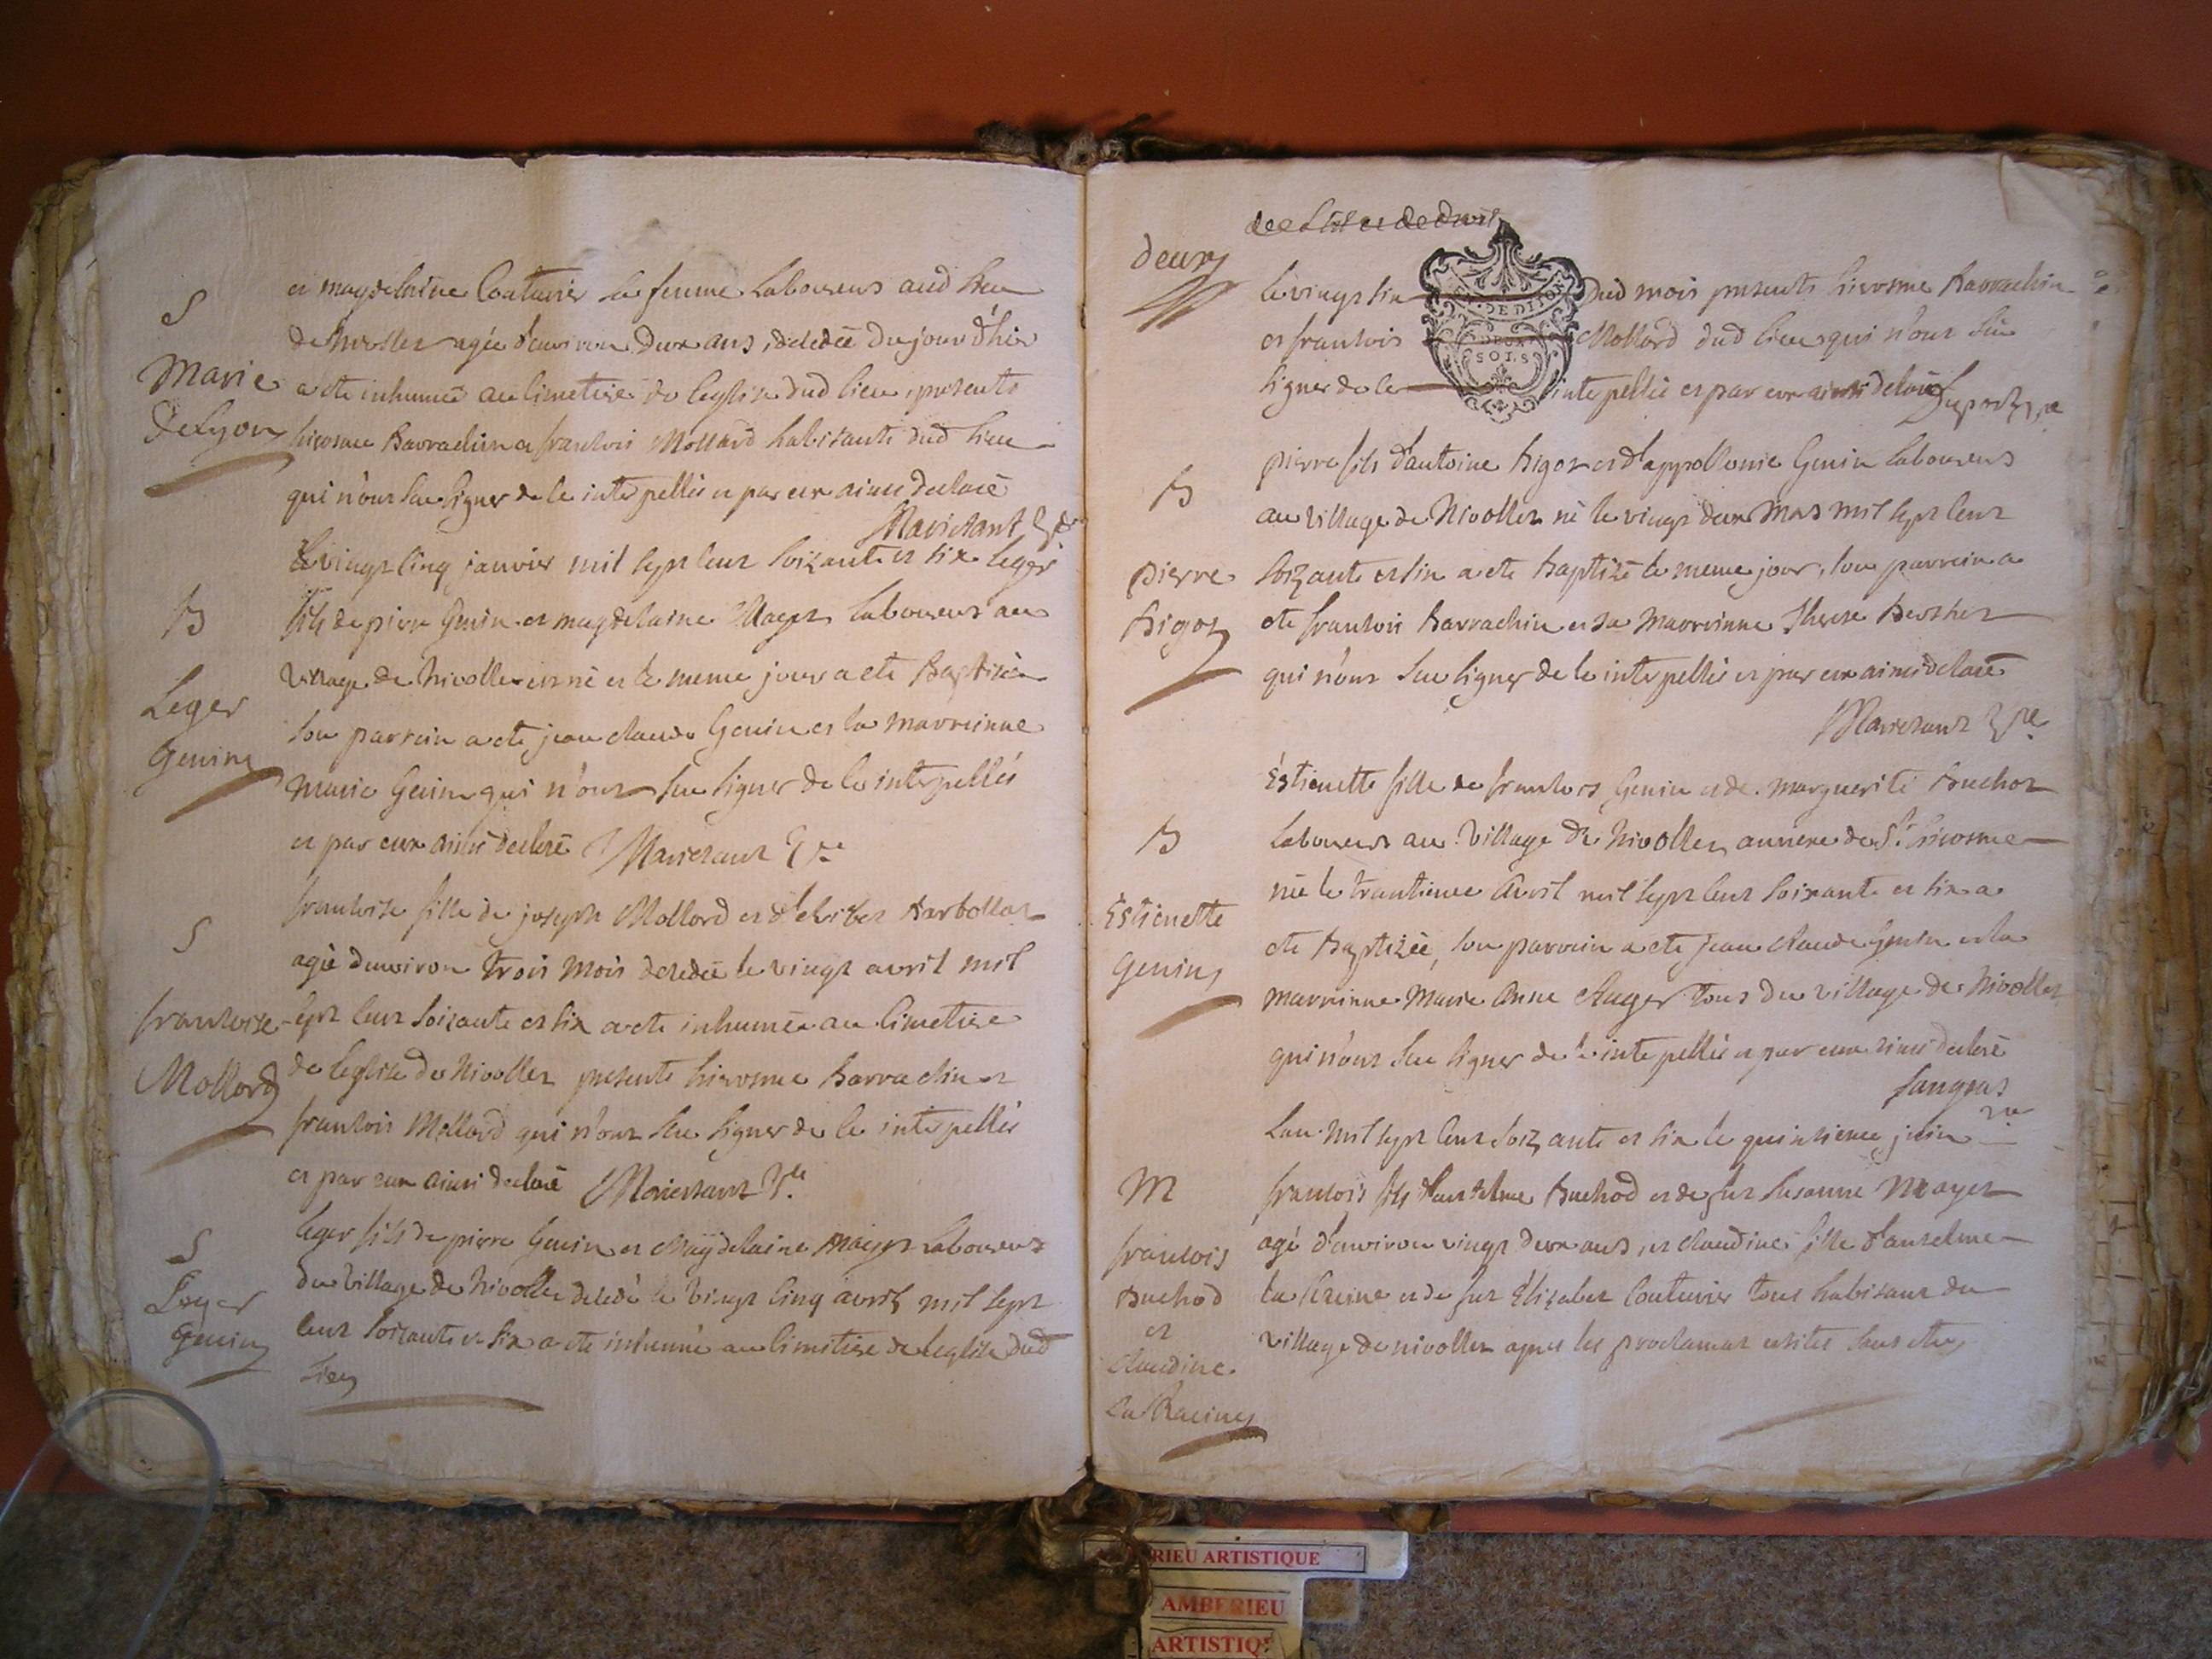 S
Marie
Delyon
et magdelaine Couturier sa femme laboureurs aud lieu
de Nivollet agée d'environ deux ans, décédée du jour d'hier
a ete inhumée au cimetiere de leglise dud lieu, presents
hierosme Barrachin et francois Mollard habitants dud lieu
qui n'ont sceu signer de ce interpellés et par eux ainsi declaré
B
Leger
Genin
Le vingt cinq janvier mil sept cent soixante et six leger
fils de pierre Genin et magdelaine Mayet laboureurs au
village de Nivollet est né et le meme jour a ete baptisé
son parrein a ete jean claude Genin et la marreinne
marie Genin qui n'ont sceu signer de ce interpellés
et par eux ainsi declaré
S
francoise
Mollard
francoise fille de joseph Mollard et d'elizabet Barbollat
agée denviron trois mois décédée le vingt avril mil
sept cent soixante et six a ete inhumée au cimetiere
de leglise de Nivollet presents hierosme Barrachin et
francois Mollard qui n'ont sceu signer de ce interpellés
et par eux ainsi declaré
S
Leger
Genin
leger fils de pierre Genin et Magdelaine Mayet laboureurs
du village de Nivollet décédé le vingt cinq avril mil sept
cent soixante et six a ete inhumé au cimetiere de leglise dud
lieu
deux
le vingt six dud mois presents hierosme Barrachin
et francois Mollard dud lieu qui n'ont sceu
signer de ce interpellés et par eux ainsi declaré
DE DIJON
DEUX
SOLS
B
pierre
Bigot
pierre fils d'antoine Bigot et d'appollonie Genin laboureurs
au village de Nivollet né le vingt deux Mas mil sept cent
soixante et six a ete baptizé le meme jour, son parrein a
ete francois Barrachin et sa marreinne therese Berthet
qui n'ont sceu signer de ce interpellés et par eux ainsi declaré
B
Estienette
Genin
Estienette fille de francois Genin et de marguerite Buchot
laboureurs au village de Nivollet annexe de St. hierosme
née le trantieme avril mil sept cent soixante et six a
ete baptizée, son parrein a ete jean claude Genin et la
marreinne Marie Anne Auger tous du village de Nivollet
qui n'ont sceu signer de ce interpellés et par eux ainsi declaré
M
francois
Buchod
et
Claudine
La Racine
Lan mil sept cent soixante et six le quinsieme juin
francois fils d'anthelme Buchod et de fut Susanne Mayet
agé d'environ vingt deux ans, et claudine fille d'anselme
La Racine et de fut Elizabet Couturier tous habitant du
village de nivollet apres les proclamat
RIEU ARTISTIQUE
AMBERIEU
ARTISTIQ